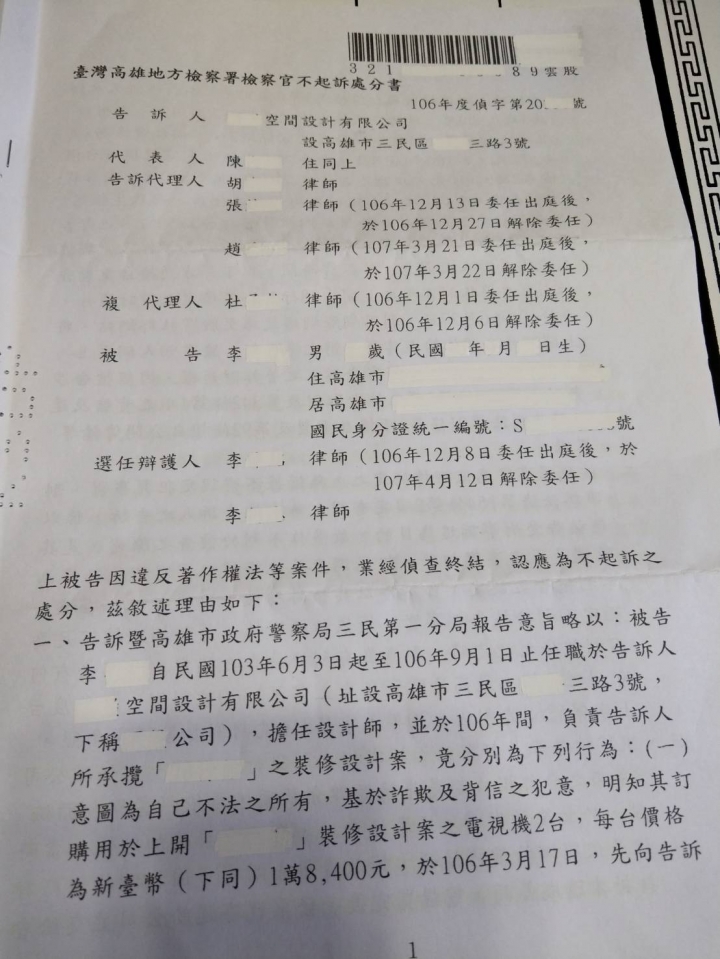 321 89雲股
臺灣高雄地方檢察署檢察官不起訴處分書
106年度偵字第20 號
告訴人 空間設計有限公司
設高雄市三民區 三路3號
代表人 陳 住同上
告訴代理人 胡 律師
張 律師(106年12月13日委任出庭後,
於106年12月27日解除委任)
趙 律師(107年3月21日委任出庭後,
於107年3月22日解除委任)
複代理人 杜 律師(106年12月1日委任出庭後,
於106年12月6日解除委任)
被告 李 男 歲(民國 年 月 日生)
住高雄市
居高雄市
國民身分證統一編號:S 號
選任辯護人 李 律師(106年12月8日委任出庭後,於
107年4月12日解除委任)
李 律師
上被告因違反著作權法等案件,業經偵查終結,認應為不起訴之
處分,茲敘述理由如下:
一、告訴暨高雄市政府警察局三民第一分局報告意旨略以:被告
李 自民國103年6月3日起至106年9月1日止任職於告訴人
空間設計有限公司(址設高雄市三民區 三路3號,
下稱 公司),擔任設計師,並於106年間,負責告訴人
所承攬「 」之裝修設計案,竟分別為下列行為:(一)
意圖為自己不法之所有,基於詐欺及背信之犯意,明知其訂
購用於上開「 」裝修設計案之電視機2台,每台價格
為新臺幣(下同)1萬8,400元,於106年3月17日,先向告訴
1